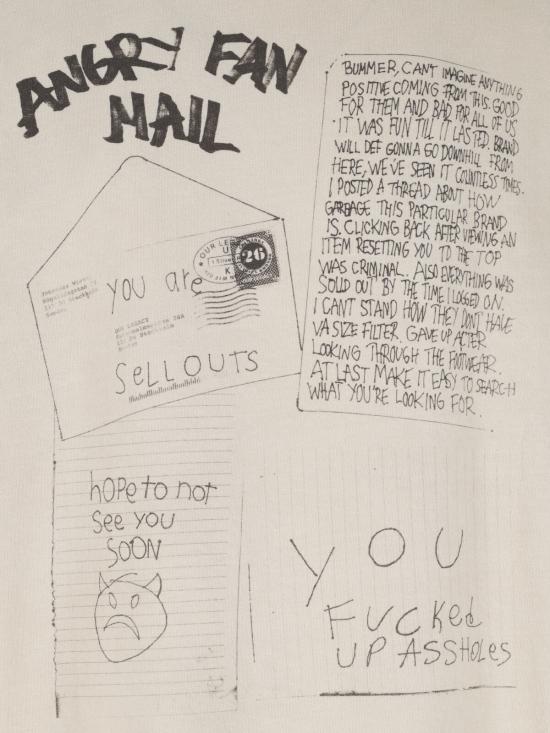 ANGRY FAN
MAIL
BUMMER, CANT IMAGINE ANYTHING
POSITIVE COMING FROM THIS. GOOD
FOR THEM AND BAD FOR ALL OF US
IT WAS FUN TILL IT LASTED. BRAND
WILL DEF GONNA GO DOWNHILL FROM
HERE, WE'VE SEEN IT COUNTLESS TIMES.
I POSTED A THREAD ABOUT HOW
GARBAGE THIS PARTICULAR BRAND
IS. CLICKING BACK AFTER VIEWING AN
ITEM RESETTING YOU TO THE TOP
WAS CRIMINAL. ALSO EVERYTHING WAS
SOLD OUT BY THE TIME I LOGGED ON.
I CANT STAND HOW THEY DONT HAVE
VA SIZE FILTER. GAVE UP AFTER
LOOKING THROUGH THE FOOTWEAR.
AT LAST MAKE IT EASY TO SEARCH
WHAT YOU'RE LOOKING FOR.
OUR LE
26
YOU are
OUR LEGACY
SELLOUTS
hOPe to not
See you
SOON
YOU
FUCKed
UP ASSHOLes